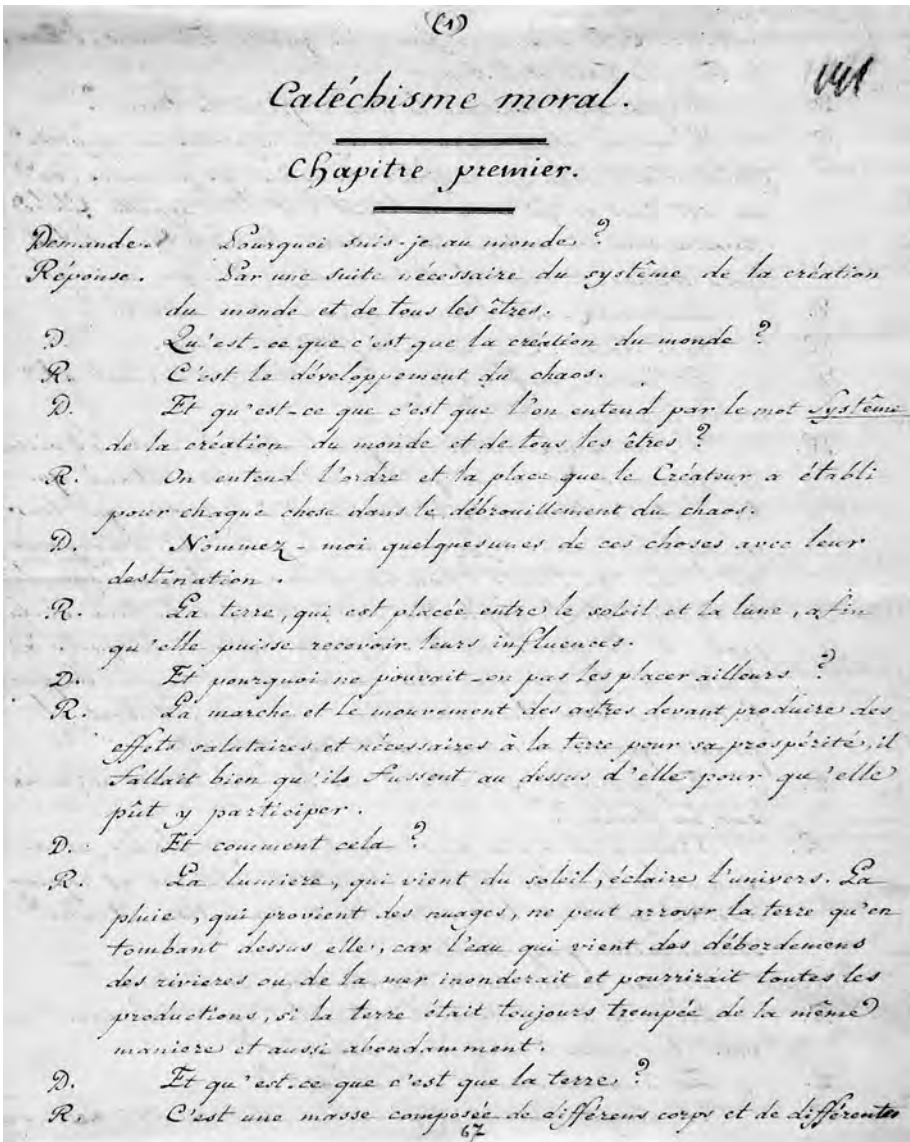 (1)
Catéchisme moral.
Chapitre premier.
Demande. Pourquoi suis-je au monde ?
Réponse. Par une suite nécessaire du systême de la création
du monde et de tous les êtres.
D. Qu'est-ce que c'est que la création du monde ?
R. C'est le développement du chaos.
D. Et qu'est-ce que c'est que l'on entend par le mot Systême
de la création du monde et de tous les êtres ?
R. On entend l'ordre et la place que le Créateur a établi
pour chaque chose dans le débrouillement du chaos.
D. Nommez-moi quelquesunes de ces choses avec leur
destination.
R. La terre, qui est placée entre le soleil et la lune, afin
qu'elle puisse recevoir leurs influences.
D. Et pourquoi ne pouvait-on pas les placer ailleurs ?
R. La marche et le mouvement des astres devant produire des
effets salutaires et nécessaires à la terre pour sa prospérité, il
fallait bien qu'ils fussent au dessus d'elle pour qu'elle
pût y participer.
D. Et comment cela ?
R. La lumiere, qui vient du soleil, éclaire l'univers. La
pluie, qui provient des nuages, ne peut arroser la terre qu'en
tombant dessus elle, car l'eau qui vient des débordemens
des rivieres ou de la mer inonderait et pourrirait toutes les
productions, si la terre était toujours trempée de la même
maniere et aussi abondamment.
D. Et qu'est-ce que c'est que la terre ?
R. C'est une masse composée de différens corps et de différentes
67